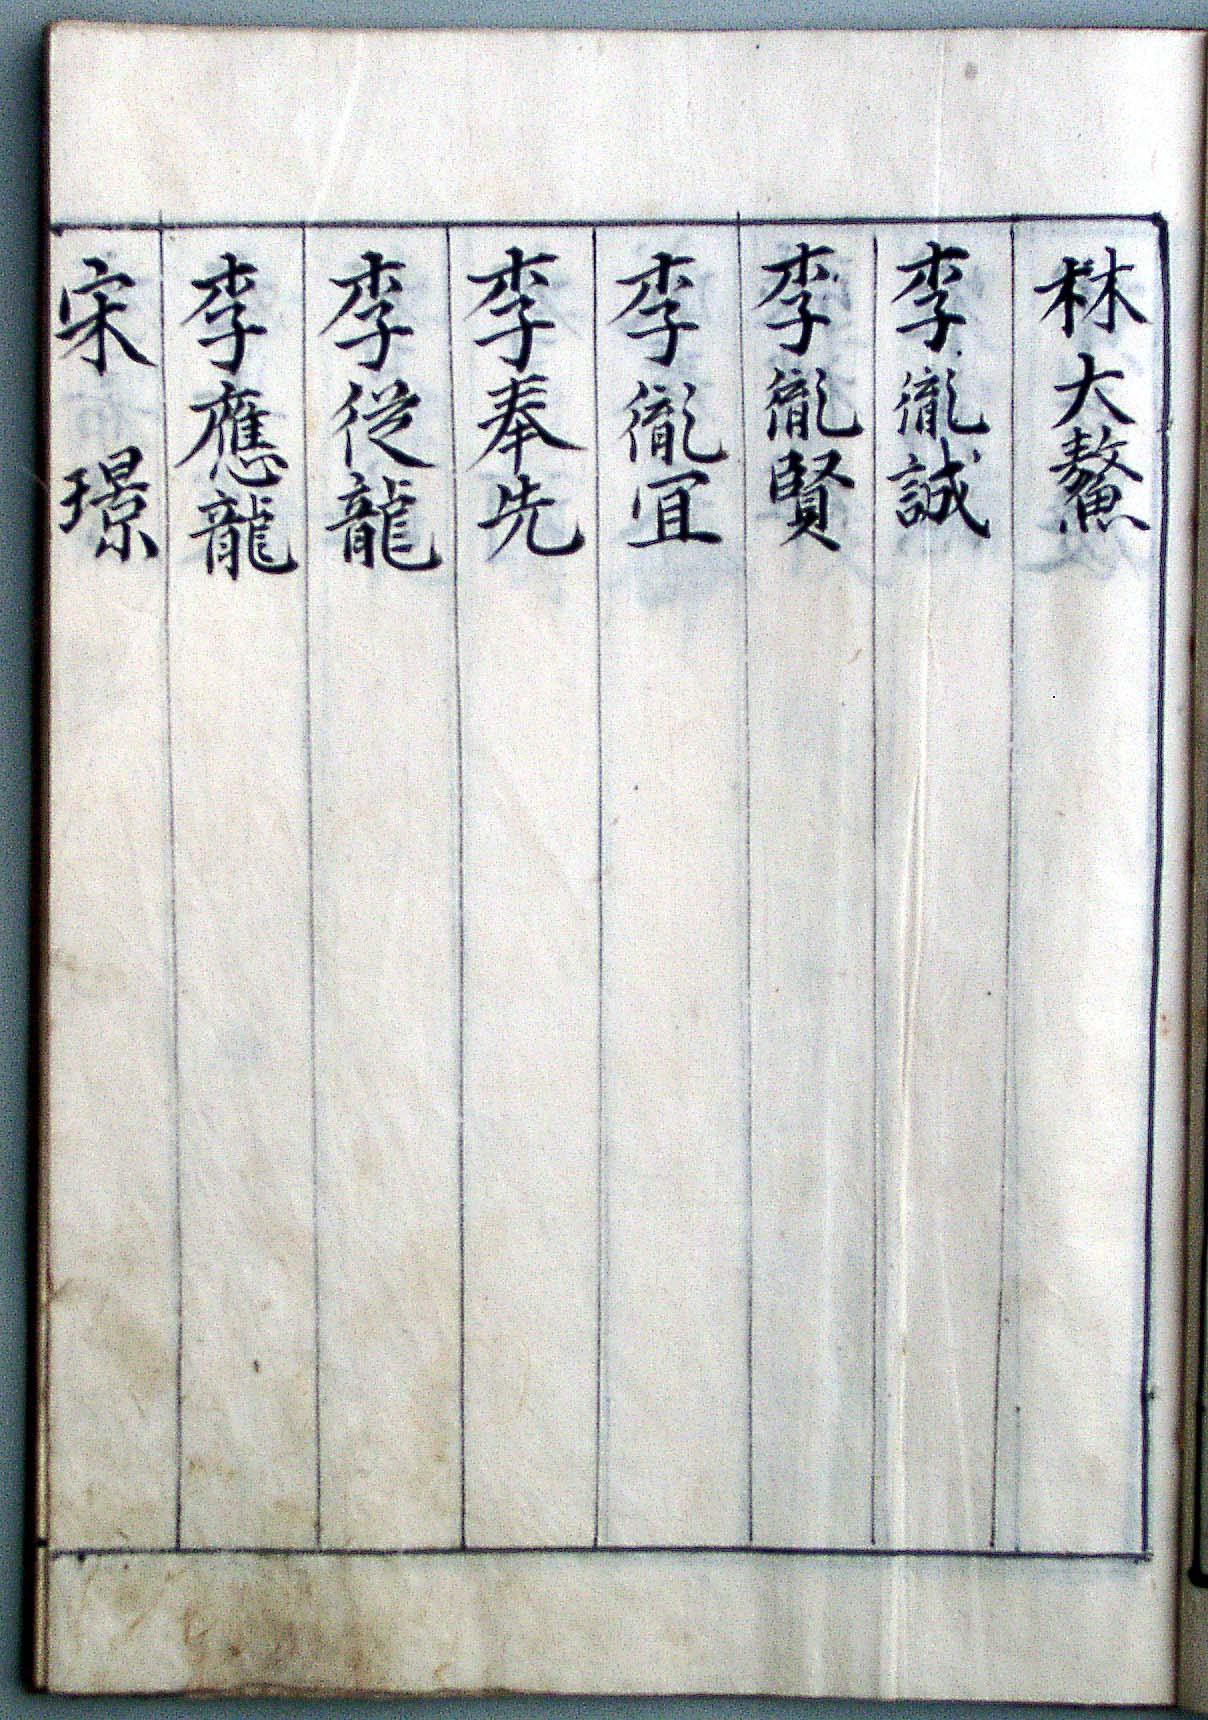 林大鰲
李胤誠
李胤賢
李胤冝
李奉先
李從龍
李應龍
宋璟